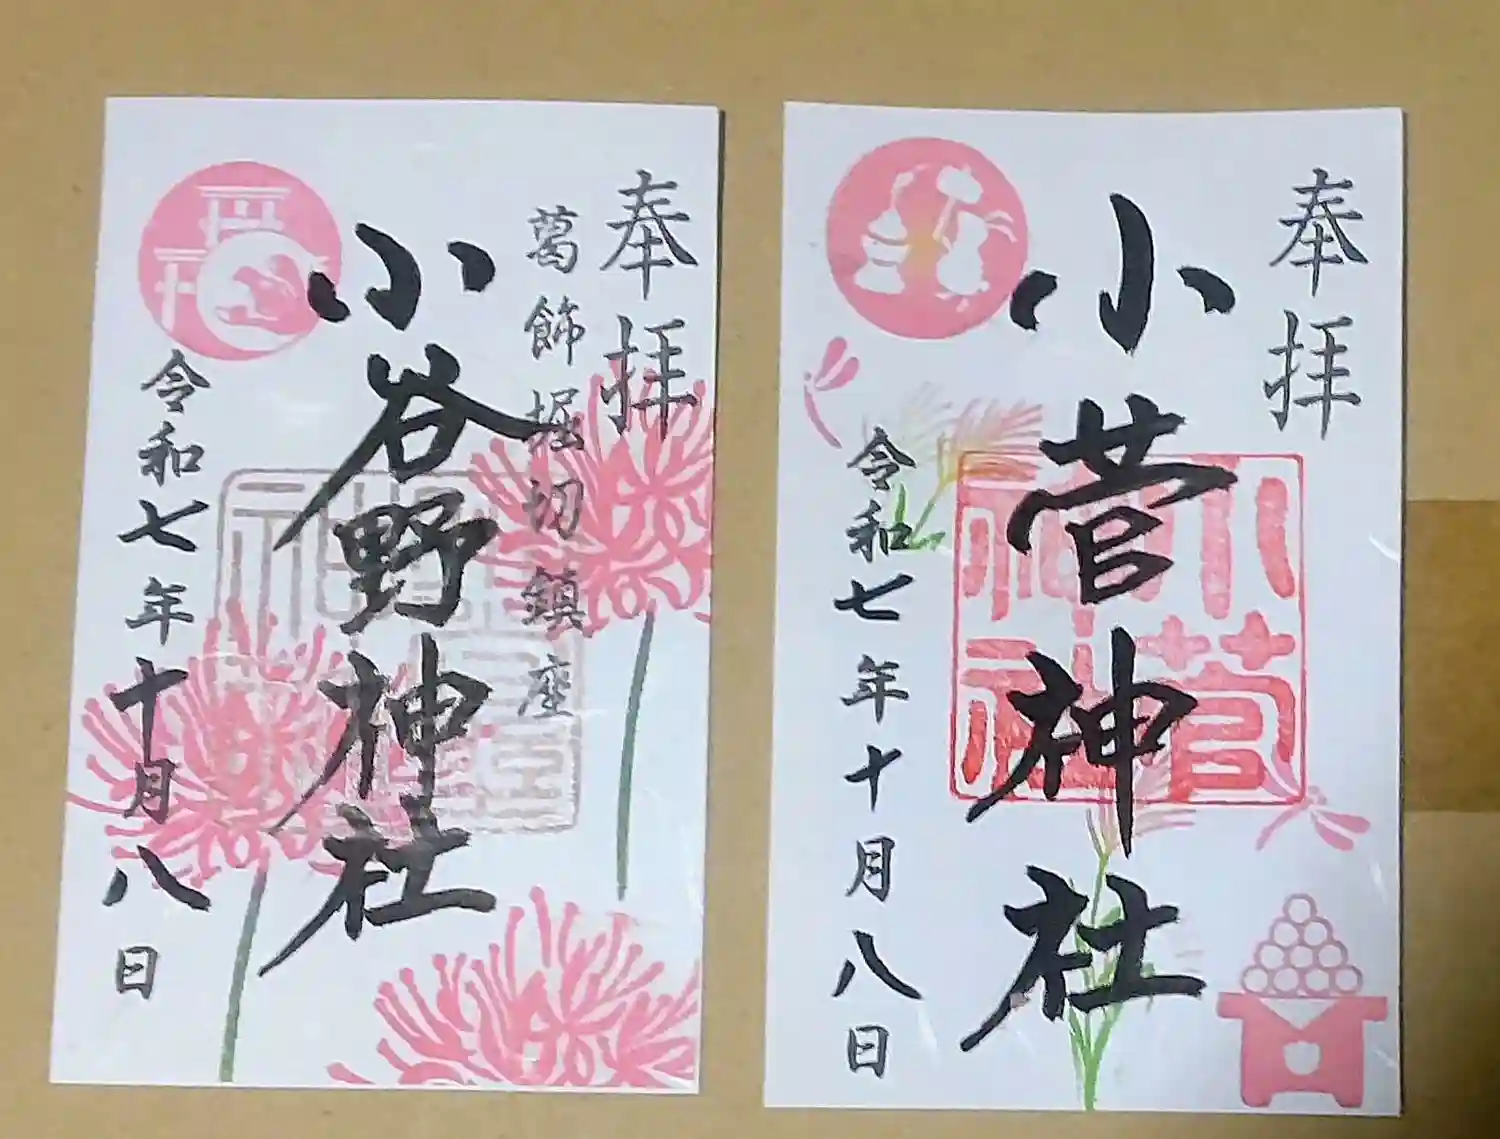 奉拝
葛飾堀切鎮座
小谷野神社
令和七年十月八日
奉拝
小菅神社
小菅神社
令和七年十月八日